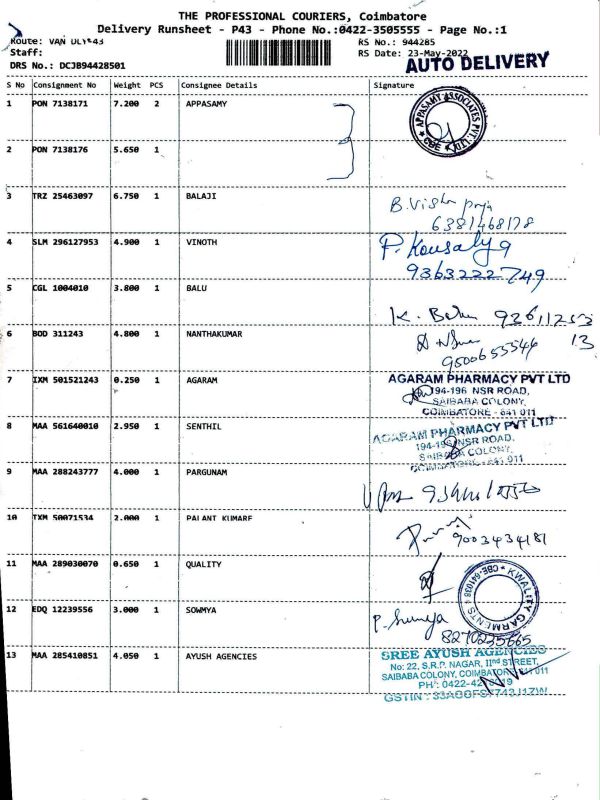 THE PROFESSIONAL COURIERS, Coimbatore
Delivery Runsheet - P43 - Phone No.:0422-3505555 - Page No.:1
Route: VAN DLY*43 RS No.: 944285
Staff: RS Date: 23-May-2022
DRS No.: DCJB94428501 AUTO DELIVERY
S No Consignment No Weight PCS Consignee Details Signature
1 PON 7138171 7.200 2 APPASAMY
APPASAMY ASSOCIATES PVT. LTD. * CBE *
2 PON 7138176 5.650 1
3 TRZ 25463097 6.750 1 BALAJI B. Vishnu
6381468178
4 SLM 296127953 4.900 1 VINOTH P. Kousalya
9363222749
5 CGL 1004010 3.800 1 BALU K. Balu 93611253
13
6 BOD 311243 4.800 1 NANTHAKUMAR
9500655546
7 IXM 501521243 0.250 1 AGARAM AGARAM PHARMACY PVT LTD
194-196 NSR ROAD,
SAIBABA COLONY,
COIMBATORE - 641 011
8 MAA 561640010 2.950 1 SENTHIL AGARAM PHARMACY PVT LTD
194-196 NSR ROAD,
SAIBABA COLONY,
COIMBATORE - 641 011
9 MAA 288243777 4.000 1 PARGUNAM
10 TXM 50071534 2.000 1 PALANT KUMARF
9003434181
11 MAA 289030070 0.650 1 QUALITY
KWALITY GARMENTS * CBE-641038 *
12 EDQ 12239556 3.000 1 SOWMYA P. Sumya
8270235665
13 MAA 285410851 4.050 1 AYUSH AGENCIES SREE AYUSH AGENCIES
No: 22, S.R.P. NAGAR, IInd STREET,
SAIBABA COLONY, COIMBATORE - 641 011
PH: 0422-42
GSTIN :